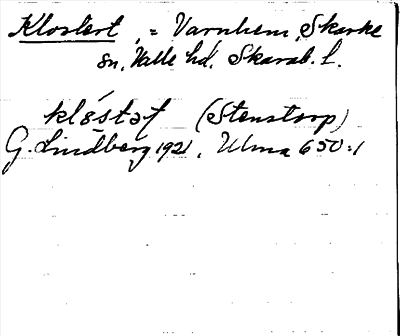 Klostert, = Varnhem, Skarke
sn, Valle hd, Skarab. l.
klóstət (Stenstorp)
G. Lindberg 1921, Ulma 650:1